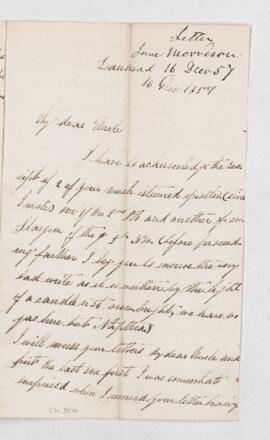 Letter
Morrison
16 Decr 57
16 Dec 1857
My dear Uncle
I have to acknowledge the rec
eipt of 2 of your much esteemed epistles (since
I wrote) one of the 2nd and another from
of the 9th Nov. before proceed
ing farther I beg you to excuse the very
bad write as it is written by the light
of a candle not overbright, we have no
gas here but Naptha
I will answer your letters my dear Uncle and
first the last one first I was somewhat
surprised when I received your letter